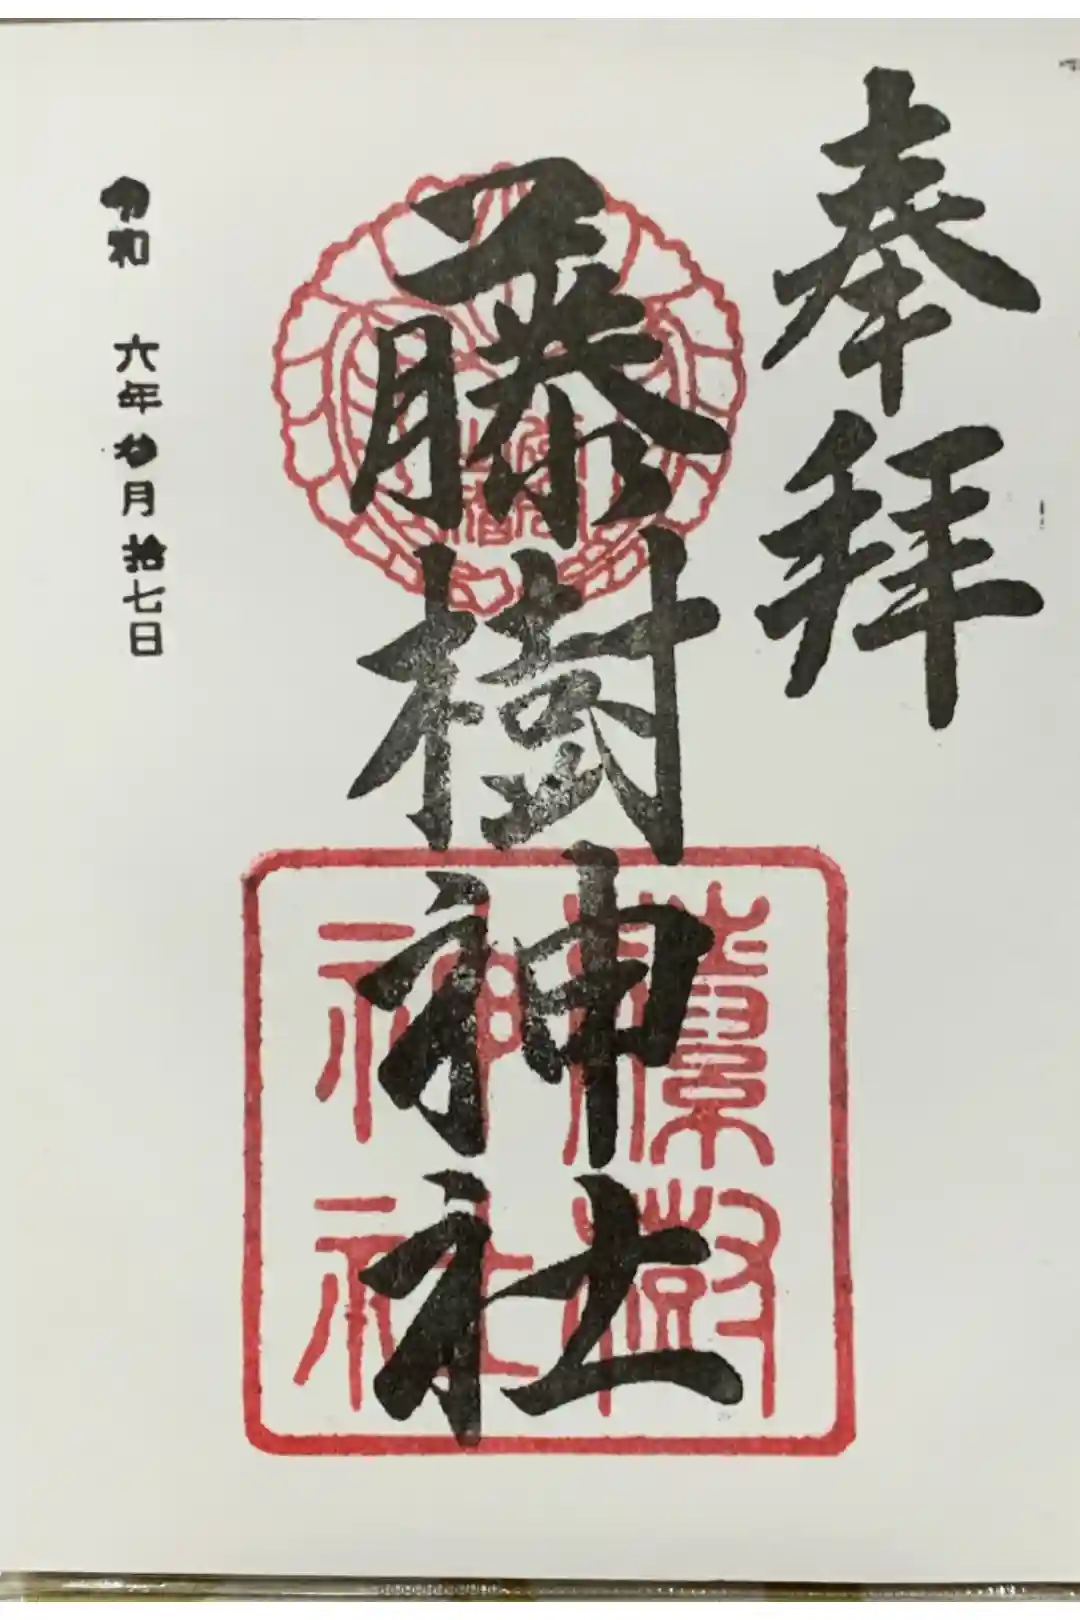 奉拝
藤樹神社
藤樹
神社
令和 六年 月拾七日